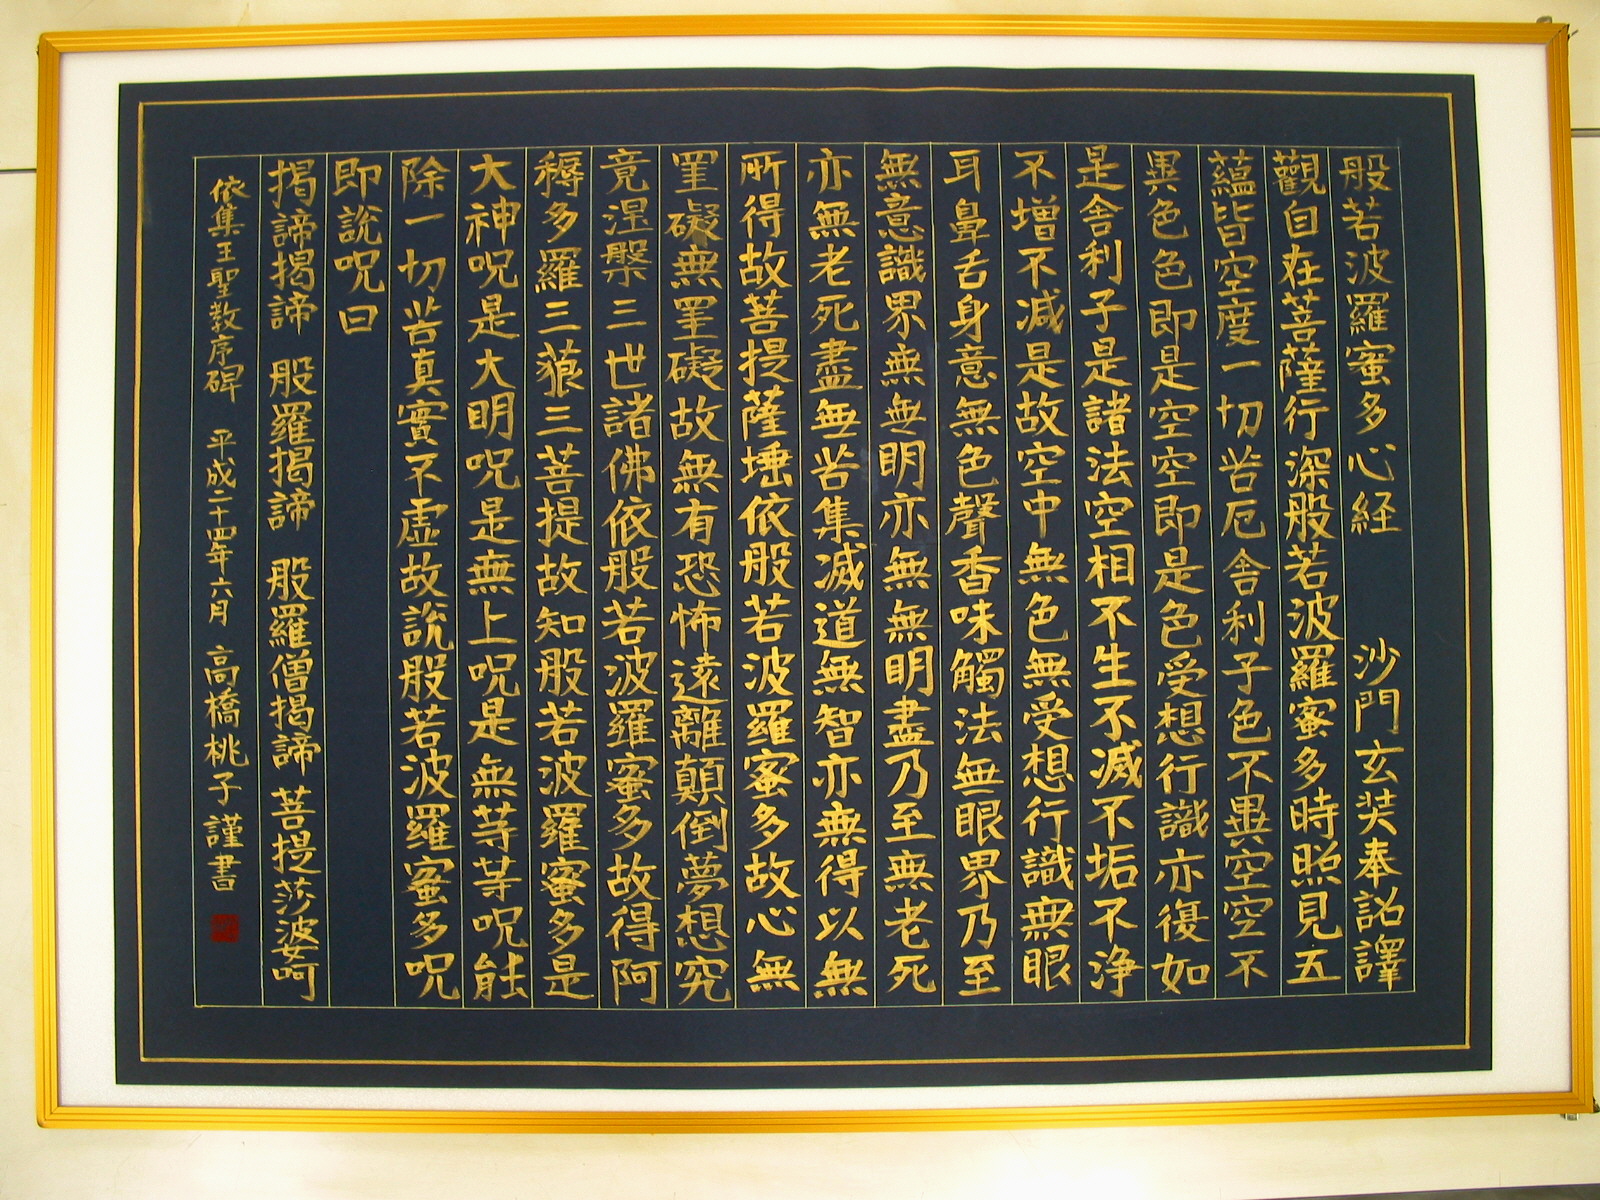 般若波羅蜜多心経　沙門玄奘奉詔譯
觀自在菩薩行深般若波羅蜜多時照見五
蘊皆空度一切苦厄舍利子色不異空空不
異色色即是空空即是色受想行識亦復如
是舍利子是諸法空相不生不滅不垢不浄
不增不減是故空中無色無受想行識無眼
耳鼻舌身意無色聲香味觸法無眼界乃至
無意識界無無明亦無無明盡乃至無老死
亦無老死盡無苦集滅道無智亦無得以無
所得故菩提薩埵依般若波羅蜜多故心無
罣礙無罣礙故無有恐怖遠離顛倒夢想究
竟涅槃三世諸佛依般若波羅蜜多故得阿
耨多羅三藐三菩提故知般若波羅蜜多是
大神呪是大明呪是無上呪是無等等呪能
除一切苦真實不虛故說般若波羅蜜多呪
即說呪曰
揭諦揭諦　般羅揭諦　般羅僧揭諦　菩提莎婆呵
依集王聖教序碑　平成二十四年六月　高橋桃子謹書